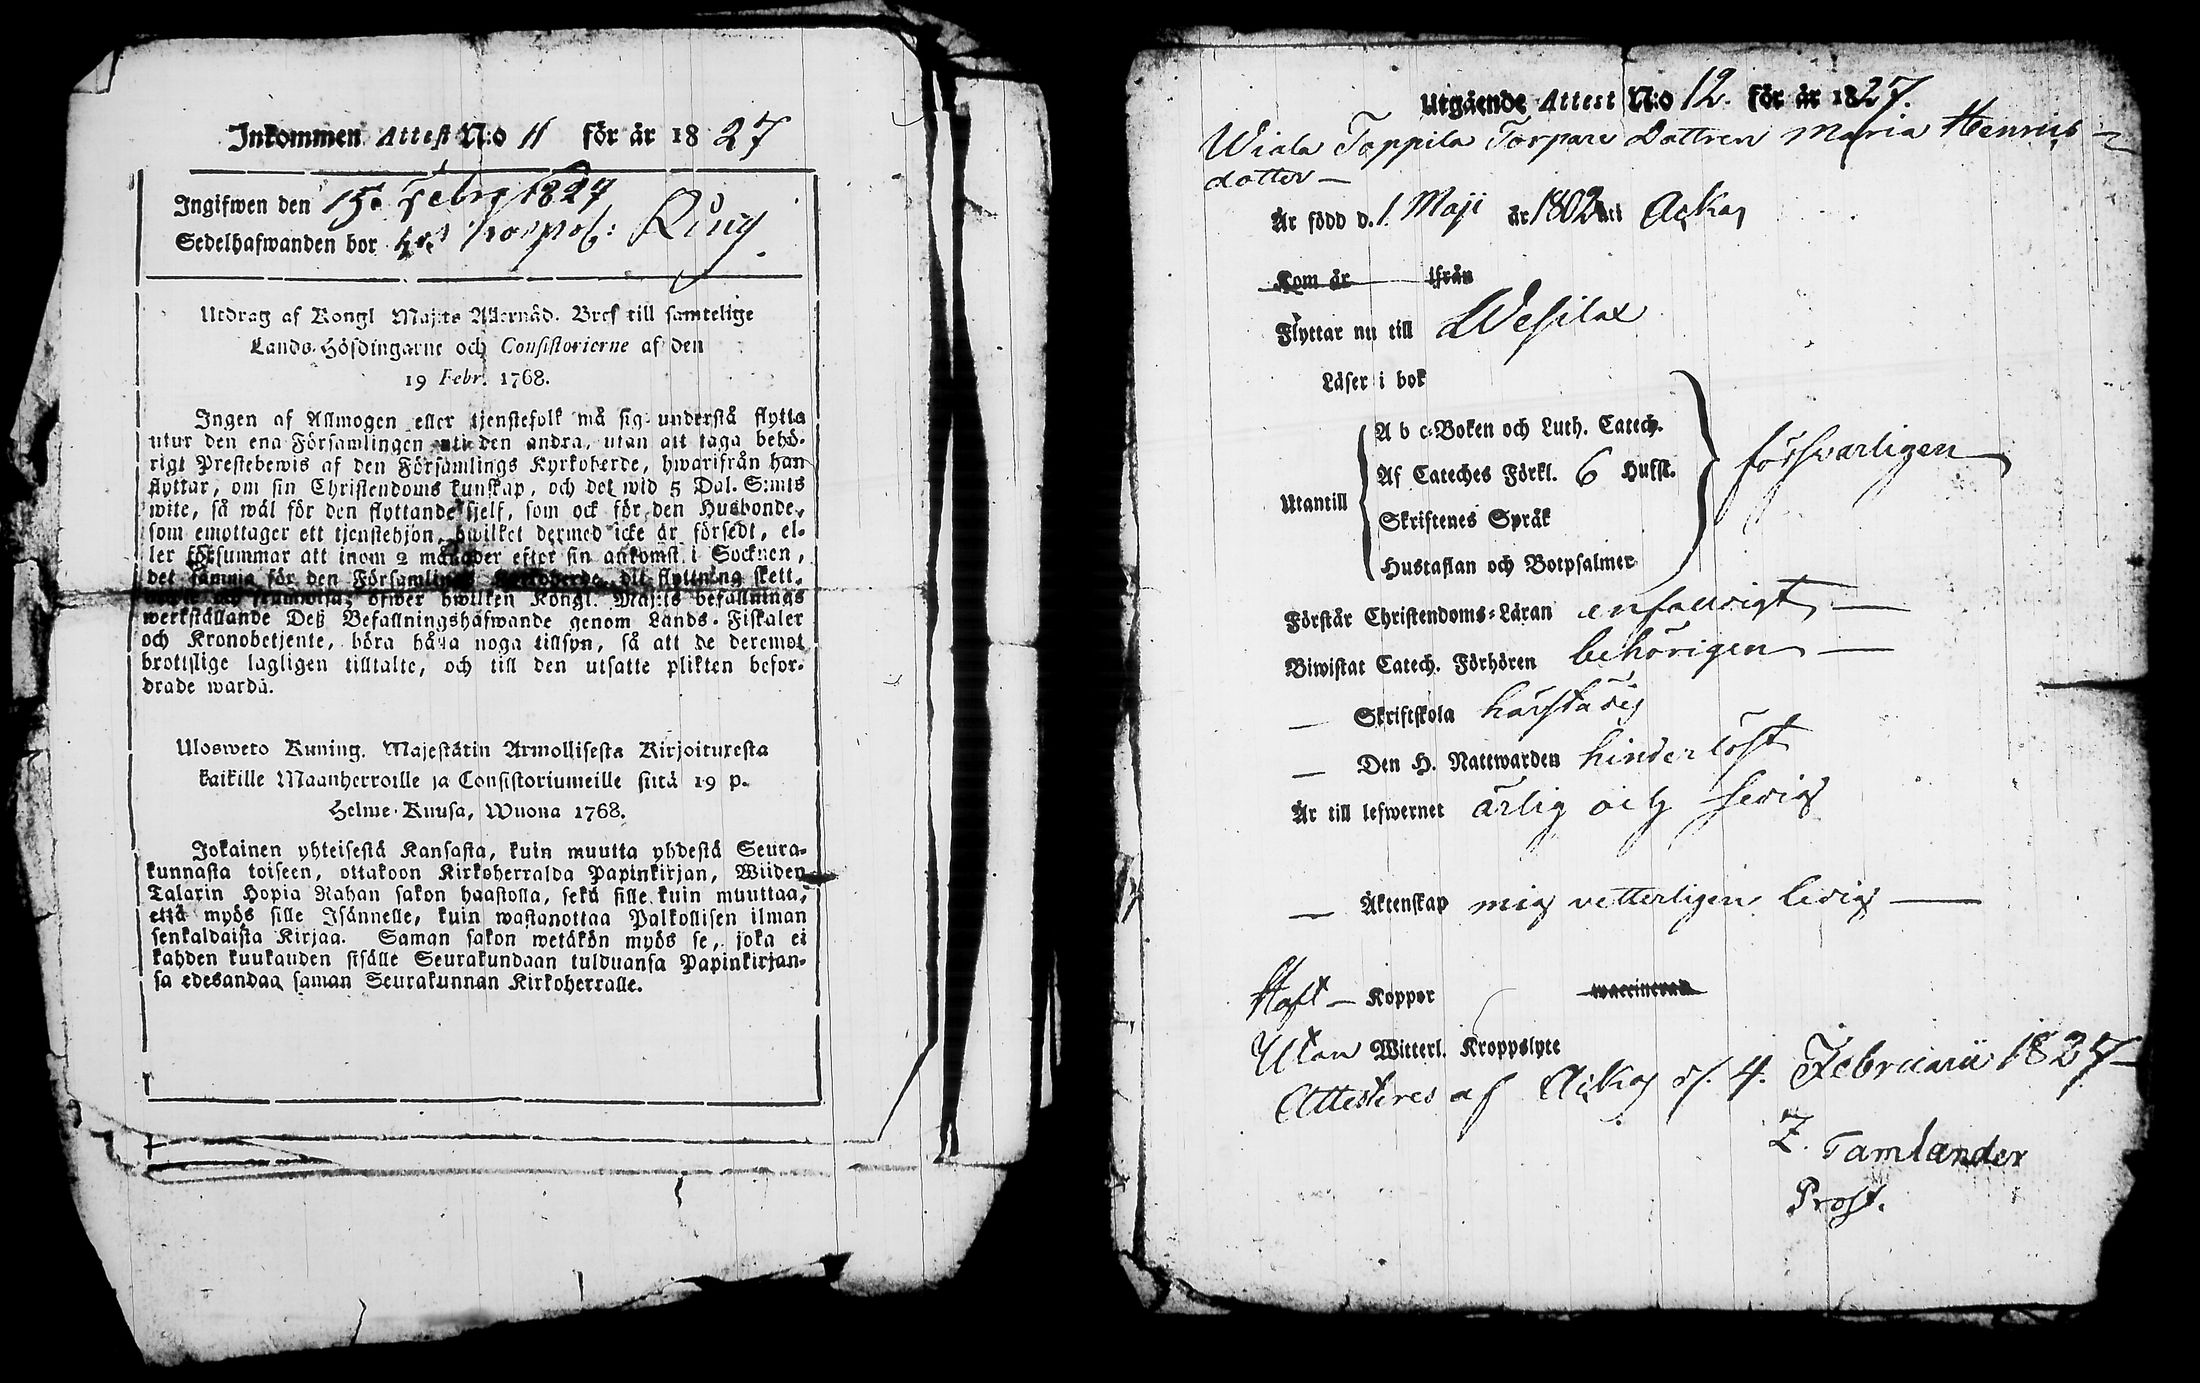 Inkommen Attest N:o 11 för år 1827
Ingifwen den 15 Febr 1827
Sedelhafwanden bor
Utdrag af Kongl Maj:ts Allernåd. Bref till samtelige
Lands-Höfdingarne och Consistorierne af den
19 Febr. 1768.
Ingen af Allmogen eller tjenstefolk må sig understå flytta
utur den ena Församlingen uti den andra, utan att taga behö-
rigt Prestebewis af den Församlings Kyrkoherde, hwarifrån han
flyttar, om sin Christendoms kunskap, och det wid 5 Dal. S:mts
wite, så wäl för den flyttande sjelf, som ock för den Husbonde,
som emottager ett tjenstehjon, hwilket dermed icke är försedt, el-
ler försummar att inom 2 månader efter sin ankomst i Socknen,
det samma för den Församlings Kyrkoherde, dit flyttning skett,
öfwer hwilken Kongl. Maj:ts befallnings
werkställande Deß Befallningshafwande genom Lands-Fiskaler
och Kronobetjente, böra hålla noga tillsyn, så att de deremot
brottslige lagligen tilltalte, och till den utsatte plikten befor-
drade warda.
Ulosweto Kuning. Majestätin Armollisesta Kirjoituxesta
kaikille Maanherroille ja Consistoriumeille siitä 19 p.
Helme-Kuusa, Wuona 1768.
Jokainen yhteisestä Kansasta, kuin muutta yhdestä Seura-
kunnasta toiseen, ottakoon Kirkoherralda Papinkirjan, Wiiden
Talarin Hopia Rahan sakon haastolla, sekä sille kuin muuttaa,
että myös sille Isännelle, kuin wastanottaa Palkollisen ilman
senkaldaista Kirjaa. Saman sakon wetäkön myös se, joka ei
kahden kuukauden sisälle Seurakundaan tulduansa Papinkirjan-
sa edesandaa saman Seurakunnan Kirkoherralle.
Utgående Attest N:o 12. För år 1827.
Wiala Toppila Torpare Dottren Maria Henrics-
dotter —
Är född d. 1 Maji år 1802 uti Ackas
Kom år ifrån
Flyttar nu till Wesilax
Läser i bok
A b c-Boken och Luth. Catech.
Af Cateches Förkl. 6 Hufst.
försvarligen
Utantill
Skriftenes Språk
Hustaflan och Botpsalmer
Förstår Christendoms-Läran enfaldigt —
Biwistat Catech. Förhören behörigen —
— Skriftskola härstädes
— Den H. Nattwarden hinderlöst
Är till lefwernet ärlig och fredig
— Äktenskap mig vetterligen ledig —
Haft — Koppor waccinerad
Utan Witterl. Kroppslyte
Attesteras af Ackas d. 4. Februarii 1827
Z. Tamlander
Prost.